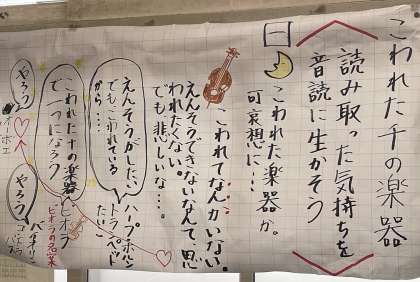 こわれた千の楽器
読み取った気持ちを
音読に生かそう
こわれた楽器か。
可哀想に…
こわれてなんかいない。
えんそうできないなんて、思
われたくない。
でも、悲しいな…。
えんそうがしたい
でも、こわれている
から…
ハープ・ホルン
トランペット
たいこ
こわれた千の楽器
で一つになろう
ビオラ
ビオラの名案
やろう
オーボエ
やろう
バイオリン
コントラ
バス